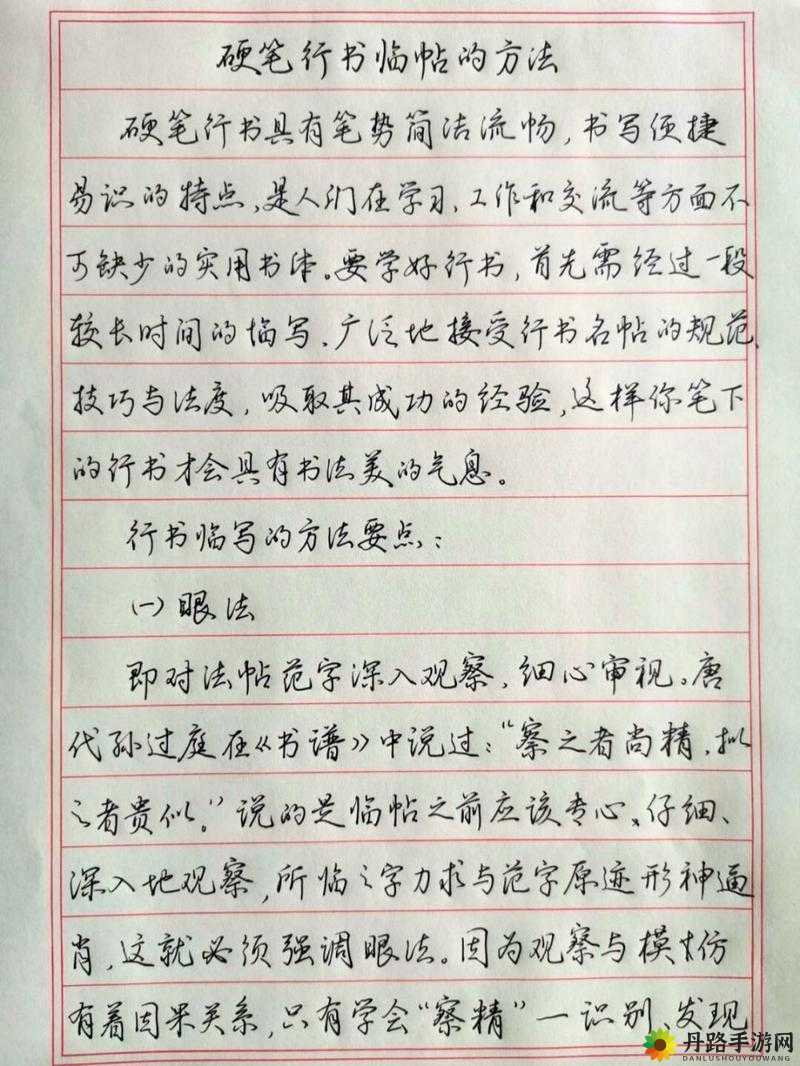 硬笔行书临帖的方法
硬笔行书具有笔势简洁流畅，书写便捷
易识的特点、是人们在学习、工作和交流等方面不
可缺少的实用书体。要学好行书，首先需经过一段
较长时间的临写、广泛地接受行书名帖的规范、
技巧与法度，吸取其成功的经验，这样你笔下
的行书才会具有书法美的气息。
行书临写的方法要点：
（一）眼法
即对法帖范字深入观察，细心审视。唐
代孙过庭在《书谱》中说过：“察之者尚精，拟
之者贵似。”说的是临帖之前应该专心、仔细、
深入地观察，所临之字力求与范字原迹形神逼
肖，这就必须强调眼法。因为观察与模仿
有着因果关系，只有学会“察精”一识别、发现
丹路手游网
DANLUSHOUYOUWANG